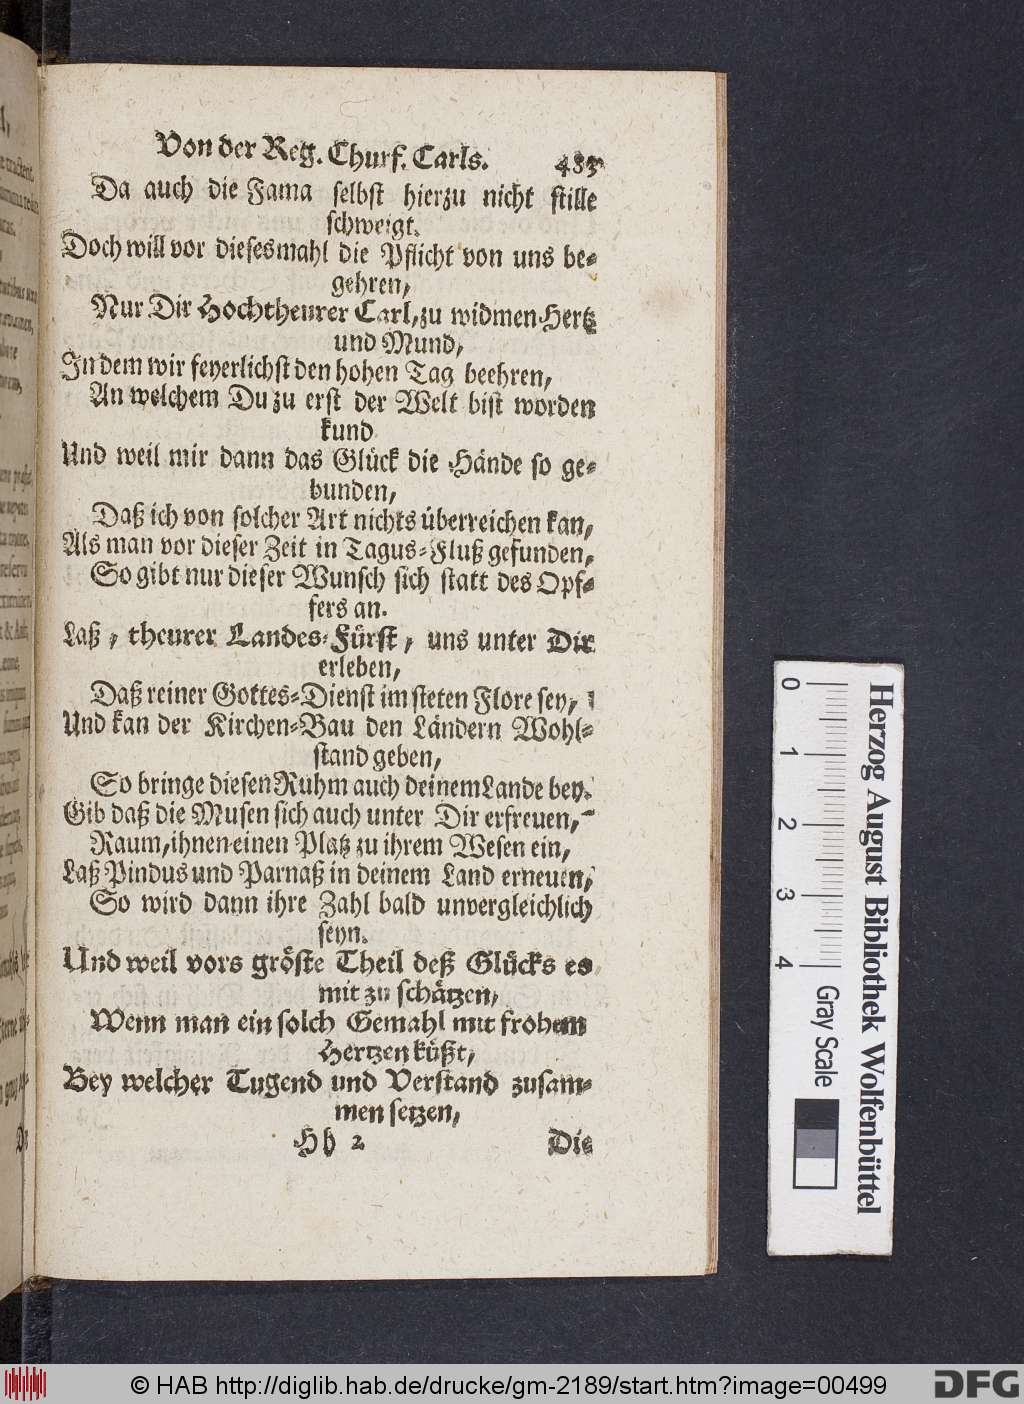 Von der Reg. Churf. Carls. 483
Da auch die Fama selbst hierzu nicht stille
schweigt.
Doch will vor diesesmahl die Pflicht von uns be-
gehren,
Nur Dir Hochtheurer Carl, zu widmen Hertz
und Mund,
In dem wir feyerlichst den hohen Tag beehren,
An welchem Du zu erst der Welt bist worden
kund
Und weil mir dann das Glück die Hände so ge-
bunden,
Daß ich von solcher Art nichts überreichen kan,
Als man vor dieser Zeit in Tagus-Fluß gefunden,
So gibt nur dieser Wunsch sich statt des Opf-
fers an.
Laß, theurer Landes-Fürst, uns unter Dir
erleben,
Daß reiner Gottes-Dienst im steten Flore sey,
Und kan der Kirchen-Bau den Ländern Wohl-
stand geben,
So bringe diesen Ruhm auch deinem Lande bey.
Gib daß die Musen sich auch unter Dir erfreuen,
Raum, ihnen einen Platz zu ihrem Wesen ein,
Laß Pindus und Parnaß in deinem Land erneuen,
So wird dann ihre Zahl bald unvergleichlich
seyn.
Und weil vors gröste Theil deß Glücks es
mit zu schätzen,
Wenn man ein solch Gemahl mit frohem
Hertzen küßt,
Bey welcher Tugend und Verstand zusam-
men setzen,
Hh 2 Die
0 1 2 3 4
Gray Scale
Herzog August Bibliothek Wolfenbüttel
© HAB http://diglib.hab.de/drucke/gm-2189/start.htm?image=00499
DFG